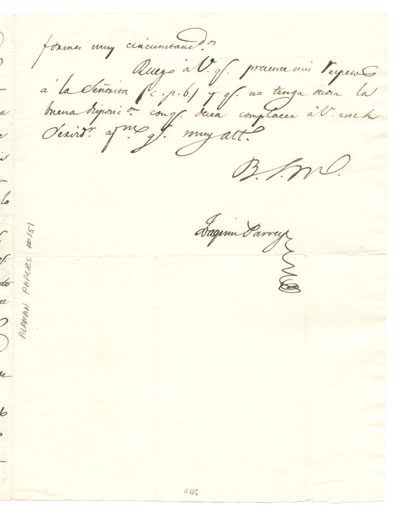 formes muy circunstand.os
Ruego à V. q.e presente mis respetos
à la Señorita (c. p. b) y q.e no tenga ociosa la
buena disposic.on con q.e desea complacer à V. este su
Servid.r af.mo q.e muy att.
B. S. M.
Parres
ALAMAN PAPERS No 151
446